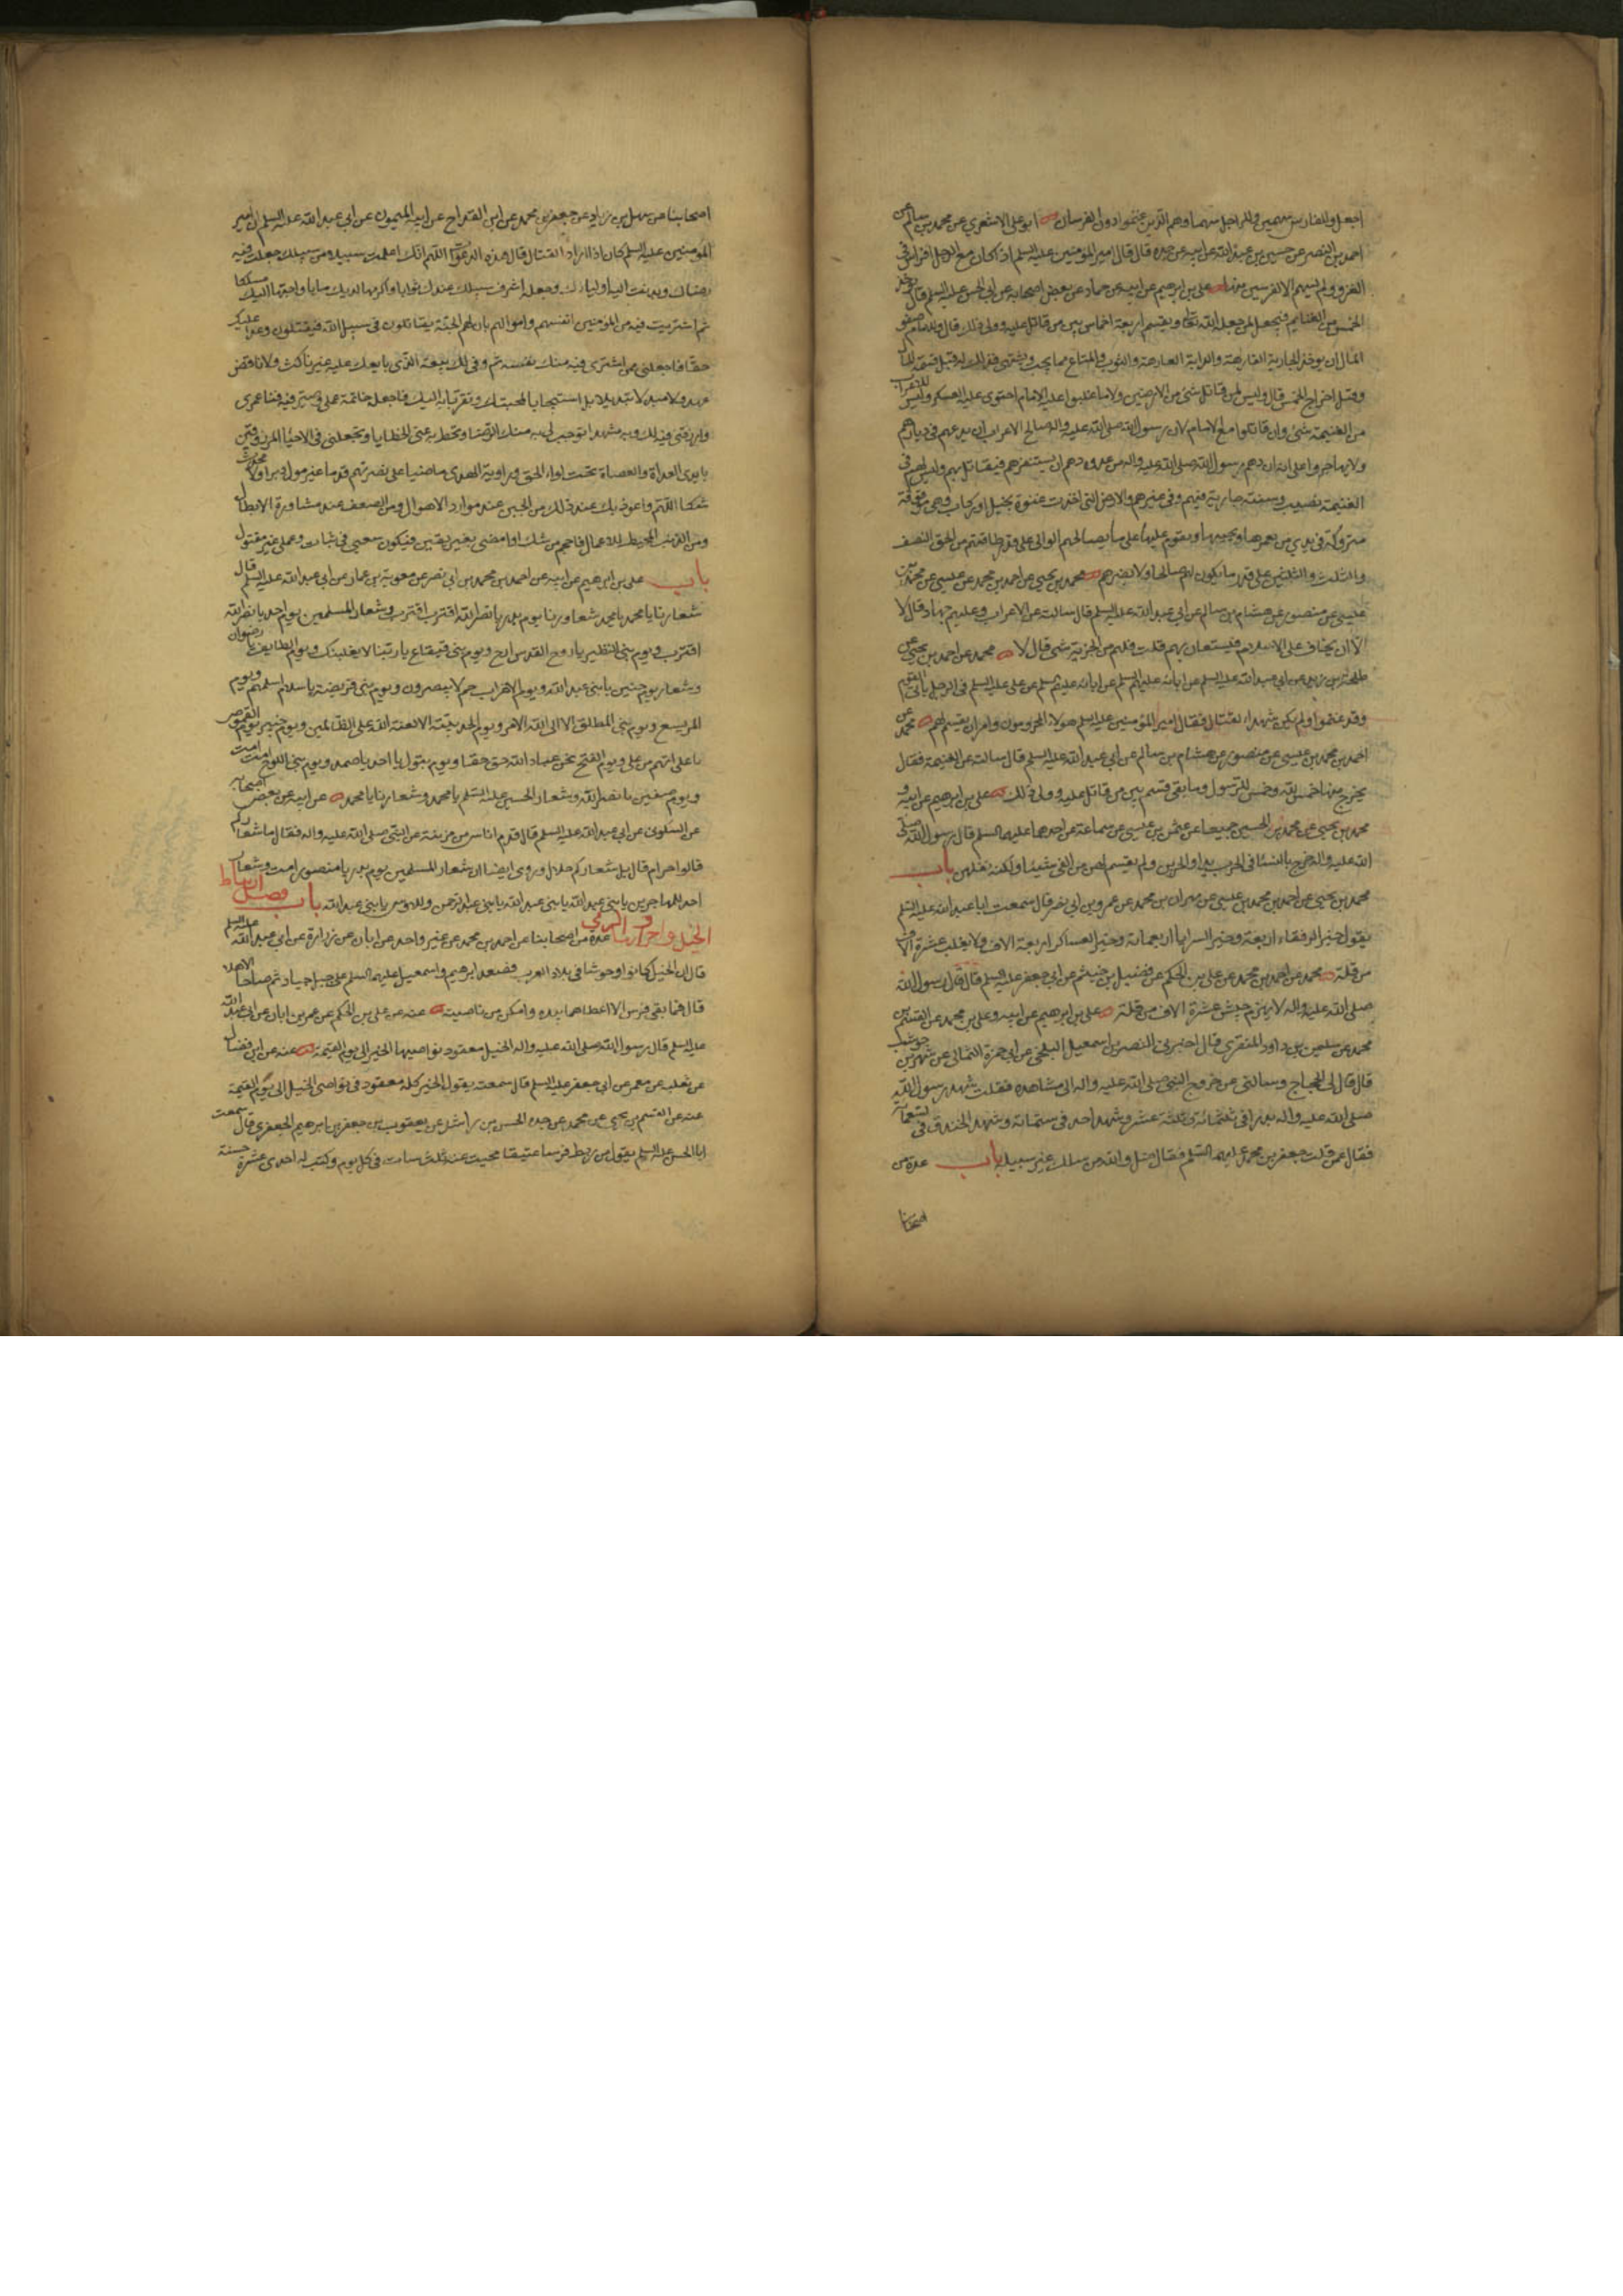 اجعل للفارس سهمين وللراجل سهما وهم الذين غنموا دون الفرسان ابو علي الاشعري عن محمد بن سالم عن
احمد بن النضر عن حسين بن عبد الله عن ابيه عن جده قال قال امير المؤمنين عليه السلم اذا كان مع الرجل افراس في
الغزو ولم يسهم الا لفرسين منها علي بن ابرهيم عن ابيه عن حماد عن بعض اصحابه عن ابي الحسن عليه السلم قال يوخذ
الخمس من الغنايم فيجعل لمن جعله الله تعالى ويقسم اربعة اخماس بين من قاتل عليه وولى ذلك قال وللامام صفو
المال ان يوخذ الجارية الفارهة والدابة الفارهة والثوب والمتاع مما يحب ويشتهى فذلك له قبل قسمة المال
وقبل اخراج الخمس قال وليس لمن قاتل شئ من الارضين ولا ما غلبوا عليه الا ما احتوى عليه العسكر وليس للاعراب
من الغنيمة شئ وان قاتلوا مع الامام لان رسول الله صلى الله عليه واله صالح الاعراب ان يدعهم في ديارهم
ولا يهاجروا على انه ان دهم رسول الله صلى الله عليه واله من عدوه دهم ان يستنفرهم فيقاتل بهم وليس لهم في
الغنيمة نصيب وسنته جارية فيهم وفي غيرهم والارض التي اخذت عنوة بخيل او ركاب وهي موقوفة
متروكة في يدي من يعمرها ويحييها ويقوم عليها على ما يصالحهم الوالي على قدر طاقتهم من الحق النصف
والثلث والثلثين على قدر ما يكون لهم صالحا ولا يضرهم محمد بن يحيى عن احمد بن محمد عن عيسى عن محمد بن
عيسى عن منصور عن هشام بن سالم عن ابي عبد الله عليه السلم قال سالت عن الاعراب وعليهم جهاد قال لا
الا ان يخاف على الاسلام فيستعان بهم قلت فلهم من الجزية شئ قال لا محمد عن احمد بن يحيى عن
طلحة بن زيد عن ابي عبد الله عليه السلم عن ابائه عليهم السلم عن علي عليه السلم في الرجل ياتي القوم
وقد غنموا ولم يكن شهد القتال فقال امير المؤمنين عليه السلم هولاء المحرومون وامر ان يقسم لهم محمد عن
احمد بن محمد بن عيسى عن منصور عن هشام بن سالم عن ابي عبد الله عليه السلم قال سالت عن الغنيمة فقال
يخرج منها خمس لله وخمس للرسول وما بقي قسم بين من قاتل عليه وولى ذلك علي بن ابرهيم عن ابيه و
محمد بن يحيى عن محمد بن الحسين جميعا عن عثمن بن عيسى عن سماعة عن احدهما عليهما السلم قال رسول الله صلى
الله عليه واله خرج بالنساء في الحرب يداوين الجرحى ولم يقسم لهن من الفئ شيئا ولكنه نفلهن باب
محمد بن يحيى عن احمد بن محمد بن عيسى عن مهران بن محمد عن عمرو بن ابي نصر قال سمعت ابا عبد الله عليه السلم
يقول خير الرفقاء اربعة وخير السرايا اربعمائة وخير العساكر اربعة الاف ولا يغلب عشرة الاف
من قلة محمد عن احمد بن محمد عن علي بن الحكم عن فضيل بن خيثم عن ابي جعفر عليه السلم قال قال رسول الله
صلى الله عليه واله لا يهزم جيش عشرة الاف من قلة علي بن ابرهيم عن ابيه وعلي بن محمد عن القسم بن
محمد عن سليمن بن داود المنقري قال اخبرني النضر بن اسمعيل البلخي عن ابي حمزة الثمالي عن شهر بن حوشب
قال قال لي الحجاج وسالني عن خروج النبي صلى الله عليه واله الى مشاهده فقلت شهد رسول الله
صلى الله عليه واله بدرا في ثلثمائة وثلثة عشر وشهد احد في ستمائة وشهد الخندق في تسعمائة
فقال عمن قلت جعفر بن محمد عليهما السلم فقال ضل والله من سلك غير سبيله باب عدة من
اصحابنا
اصحابنا عن سهل بن زياد عن جعفر بن محمد عن ابن القداح عن ابيه الميمون عن ابي عبد الله عليه السلم ان امير
المؤمنين عليه السلم كان اذا اراد القتال قال هذه الدعوات اللهم انك اعلمت سبيلا من سبلك جعلت فيه
رضاك وندبت اليه اولياءك وجعلته اشرف سبلك عندك ثوابا واكرمها لديك مابا واحبها اليك مسلكا
ثم اشتريت فيه من المؤمنين انفسهم واموالهم بان لهم الجنة يقاتلون في سبيل الله فيقتلون وعدا عليك
حقا فاجعلني ممن اشترى فيه منك نفسه ثم وفى لك ببيعه الذي بايعك عليه غير ناكث ولا ناقض
عهد ولا مبدلا تبديلا بل استيجابا لمحبتك وتقربا به اليك فاجعله خاتمة عملي وصير فيه فنا عمري
وارزقني فيه لك وبه مشهدا توجب لي به منك الرضا وتحط به عني الخطايا وتجعلني في الاحياء المرزوقين
بايدي العداة والعصاة تحت لواء الحق وراية الهدى ماضيا على نصرتهم قدما غير مول دبرا ولا محدث
شكا اللهم واعوذ بك عند ذلك من الجبن عند موارد الاهوال ومن الضعف عند مساورة الابطال
ومن الذنب المحبط للاعمال فاحجم من شك او امضي بغير يقين فيكون سعيي في تباب وعملي غير مقبول
باب علي بن ابرهيم عن ابيه عن احمد بن محمد بن ابي نصر عن معوية بن عمار عن ابي عبد الله عليه السلم قال
شعارنا يا محمد يا محمد وشعارنا يوم بدر يا نصر الله اقترب اقترب وشعار المسلمين يوم احد يا نصر الله
اقترب ويوم بني النضير يا روح القدس ارح ويوم بني قينقاع يا ربنا لا يغلبنك ويوم الطايف يا رضوان
وشعار يوم حنين يا بني عبد الله ويوم الاحزاب حم لا يبصرون ويوم بني قريضة يا سلام اسلمهم ويوم
المريسيع ويوم بني المطلق الا الى الله الامر ويوم الحديبية الا لعنة الله على الظالمين ويوم خيبر يوم القموص
يا علي ائتهم من عل ويوم الفتح نحن عباد الله حقا حقا ويوم تبوك يا احد يا صمد ويوم بني الملوح امت امت
ويوم صفين يا نصر الله وشعار الحسين عليه السلم يا محمد وشعارنا يا محمد عن ابيه عن بعض اصحابه
عن السكوني عن ابي عبد الله عليه السلم قال قدم اناس من مزينة عن النبي صلى الله عليه واله فقال ما شعاركم
قالوا حرام قال بل شعاركم حلال وروى ايضا ان شعار المسلمين يوم بدر يا منصور امت وشعار
احد للمهاجرين يا بني عبد الله يا بني عبد الرحمن وللاوس يا بني عبد الله باب فضل ارتباط
الخيل واجرائها والرمي عدة من اصحابنا عن احمد بن محمد عن غير واحد عن ابان عن زرارة عن ابي عبد الله عليه السلم
قال ان الخيل كانوا وحوشا في بلاد العرب فصعد ابرهيم واسمعيل عليهما السلم على جبل جياد ثم صاحا الا هلا
قال فما بقي فرس الا اعطاهما بيده وامكن من ناصيته عنه عن علي بن الحكم عن عمر بن ابان عن ابي عبد الله
عليه السلم قال رسول الله صلى الله عليه واله الخيل معقود بنواصيها الخير الى يوم القيمة عنه عن ابن فضال
عن ثعلبة عن معمر عن ابي جعفر عليه السلم قال سمعته يقول الخير كله معقود في نواصي الخيل الى يوم القيمة
عنه عن القسم بن يحيى عن محمد عن جده الحسن بن راشد عن يعقوب بن جعفر بن ابرهيم الجعفري قال سمعت
ابا الحسن عليه السلم يقول من ربط فرسا عتيقا محيت عنه ثلث سيات في كل يوم وكتب له احدى عشرة حسنة